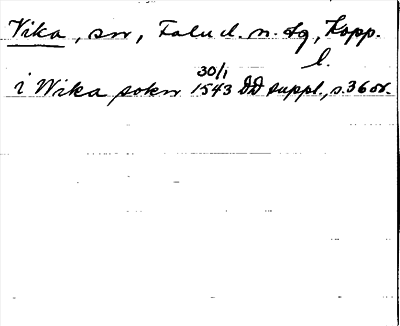 Vika, sn, Falu d. n. tg, Kopp.
l.
i Wika sokn 30/1 1543 DD suppl., s. 36 or.